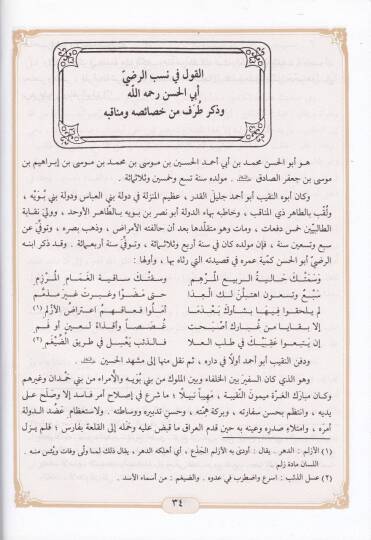 القول في نسب الرضيّ
أبي الحسن رحمه الله
وذكر طُرَف من خصائصه ومناقبه
هو أبو الحسن محمد بن أبي أحمد الحسين بن موسى بن محمد بن موسى بن إبراهيم بن
موسى بن جعفر الصادق . مولده سنة تسع وخمسين وثلاثمائة .
وكان أبوه النقيب أبو أحمد جليل القدر ، عظيم المنزلة في دولة بني العباس ودولة بني بُوَيه ،
ولُقّب بالطاهر ذي المناقب ، وخاطبه بهاء الدولة أبو نصر بن بويه بالطاهر الأوحد ، وولي نقابة
الطالبيّين خمس دفعات ، ومات وهو متقلّدها بعد أن حالفته الأمراض ، وذهب بصره ، وتوفّي عن
سبع وتسعين سنة ، فإن مولده كان في سنة أربع وثلاثمائة ، وتوفّي سنة أربعمائة . وقد ذكر ابنه
الرضي أبو الحسن كمية عمره في قصيدته التي رثاه بها ، وأولها :
وسمَتْكَ حالية الربيع المُرْهِمِ وسقَتْك ساقية الغمام المُرْزِمِ
سَبْعٌ وتسعون اهتبلْنَ لك العِدا حتى مضَوْا وغبرتَ غير مذمَّمِ
لم يلحقوا فيها بشأوك بعدما أمَلُوا فعاقهم اعتراض الأزلمِ (١)
إلا بقايا من غبارك أصبحت غُصصاً وأقذاءً لعين أو فمِ
إن يتبعوا عقِبَيْك في طلب العلا فالذئب يعسِل في طريق الضَّيْغَمِ (٢)
ودفن النقيب أبو أحمد أولًا في داره ، ثم نقل منها إلى مشهد الحسين .
وهو الذي كان السفير بين الخلفاء وبين الملوك من بني بُوَيه والأمراء من بني حَمْدان وغيرهم
وكان مبارك الغرّة ميمون النقيبة ، مَهيباً نبيلًا ؛ ما شرع في إصلاح أمر فاسد إلا وصلَح على
يديه ، وانتظم بحسن سفارته ، وبركة همّته ، وحسن تدبيره ووساطته . ولاستعظام عَضُد الدولة
أمره ، وامتلاء صدره وعينه به حين قدم العراق ما قبض عليه وحمله إلى القلعة بفارس ؛ فلم يزل
(١) الأزلم : الدهر . يقال : أودى به الأزلم الجَذَع ، أي أهلكه الدهر ، يقال ذلك لما ولّى وفات ويئس منه .
اللسان مادة زلم .
(٢) عسل الذئب : اسرع واضطرب في عدوه . والضيغم : من أسماء الأسد .
٣٤